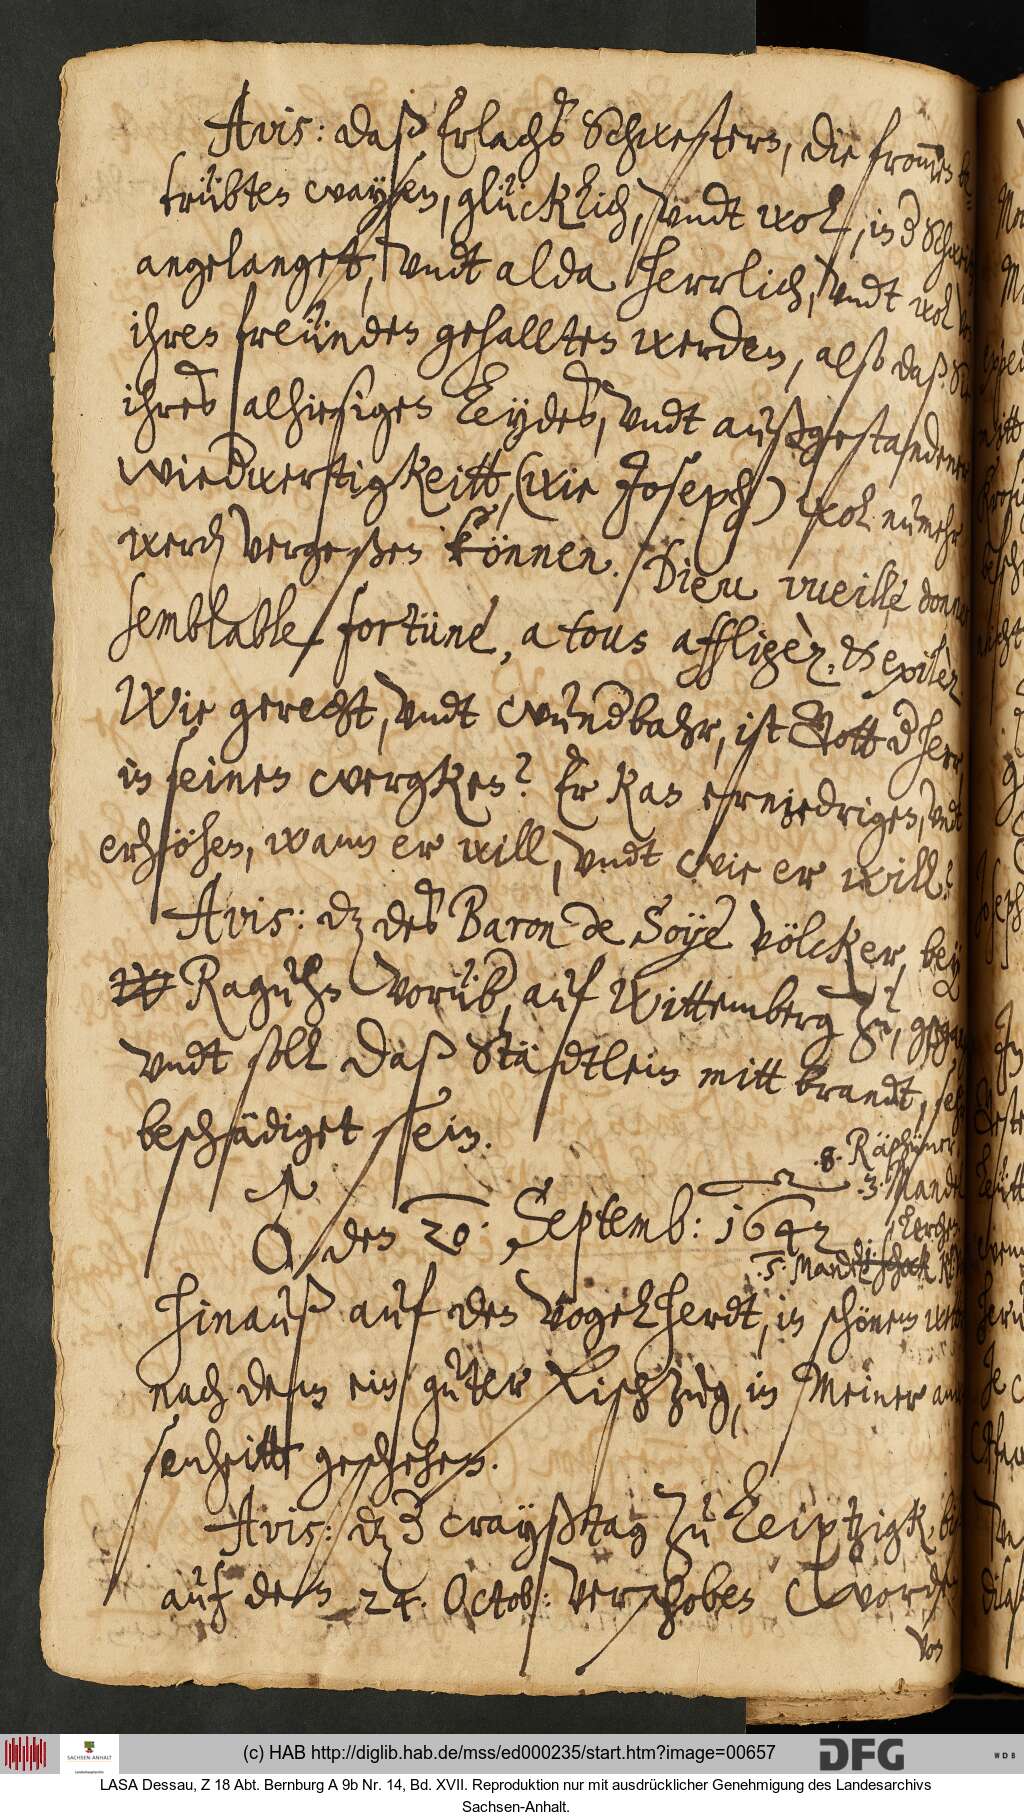 Avis: daß Erlachs Schwestern, die from̅en be
trübten waysen, glücklich, vndt wol, in d Schweitz
angelanget, vndt alda herrlich, vndt wol von
ihren freünden gehallten werden, also daß Sie
ihres alhiesigen Leydes, vndt außgestandener
wiedwertigkeitt, (wie Joseph) wol numehr
werdẽ vergeßen können. Dieu vueille donner
semblable fortune, a tous affligèz, & exilèz
Wie gerecht, vndt wundbahr, ist Gott d herr
in seinen wergken? Er kan erniedrigen, vndt
erhöhen, wann er will, vndt wie er will?
Avis: dz des Baron de Soye völcker, bey
Raguhn vorüb, auf Wittemberg zu, gegan
vndt soll daß Städtlein mitt brandt, sehr
beschädiget sein.
den 20. Septemb: 1642
.8. Räphüner
.3. Mandel
Lerchen
.5. Mandel
hinauß auf den Vogelherdt, in schönem wetter
nach dem ein guter Fischzug, in Meiner anw
senheitt geschehen.
Avis: dz d crayßtag zu Leiptzigk biß
auf den 24. Octob: verschoben worden
von
(c) HAB http://diglib.hab.de/mss/ed000235/start.htm?image=00657
SACHSEN-ANHALT
Landeshauptarchiv
DFG
WDB
LASA Dessau, Z 18 Abt. Bernburg A 9b Nr. 14, Bd. XVII. Reproduktion nur mit ausdrücklicher Genehmigung des Landesarchivs
Sachsen-Anhalt.